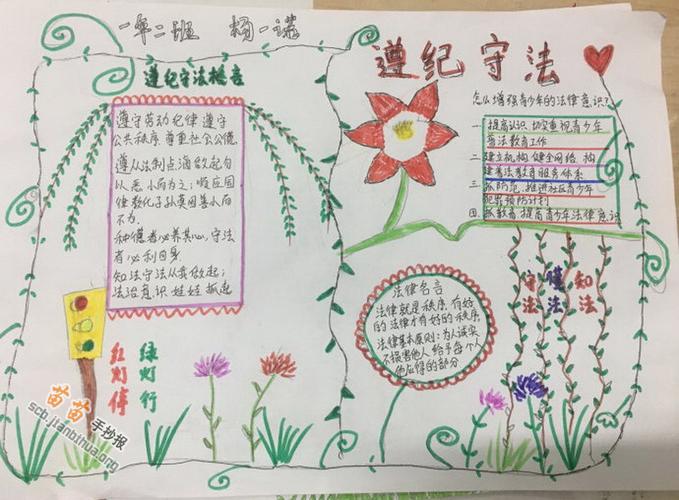 一年二班 杨一诺
遵纪守法格言
遵守劳动纪律 遵守
公共秩序 尊重社会公德
遵从法制点滴做起勿
以恶小而为之；
不为.
种德者必养其心，守法
有必利自身
知法守法从我做起；
法治意识 娃娃抓起
红灯停
绿灯行
遵纪守法
怎么增强青少年的法律意识？
一 提高认识 切实重视青少年
普法教育工作
二 建立机构 健全网络 构
建普法教育服务体系
三 抓防范，推进社区青少年
犯罪预防计划
四 抓教育 提高青少年法律意识
守法
懂法
知法
法律名言
法律就是秩序，有好
的法律才有好的秩序
法律基本原则：为人诚实
不损害他人 给予每个人
他应得的部分
苗苗手抄报
scb.jianbihua.org